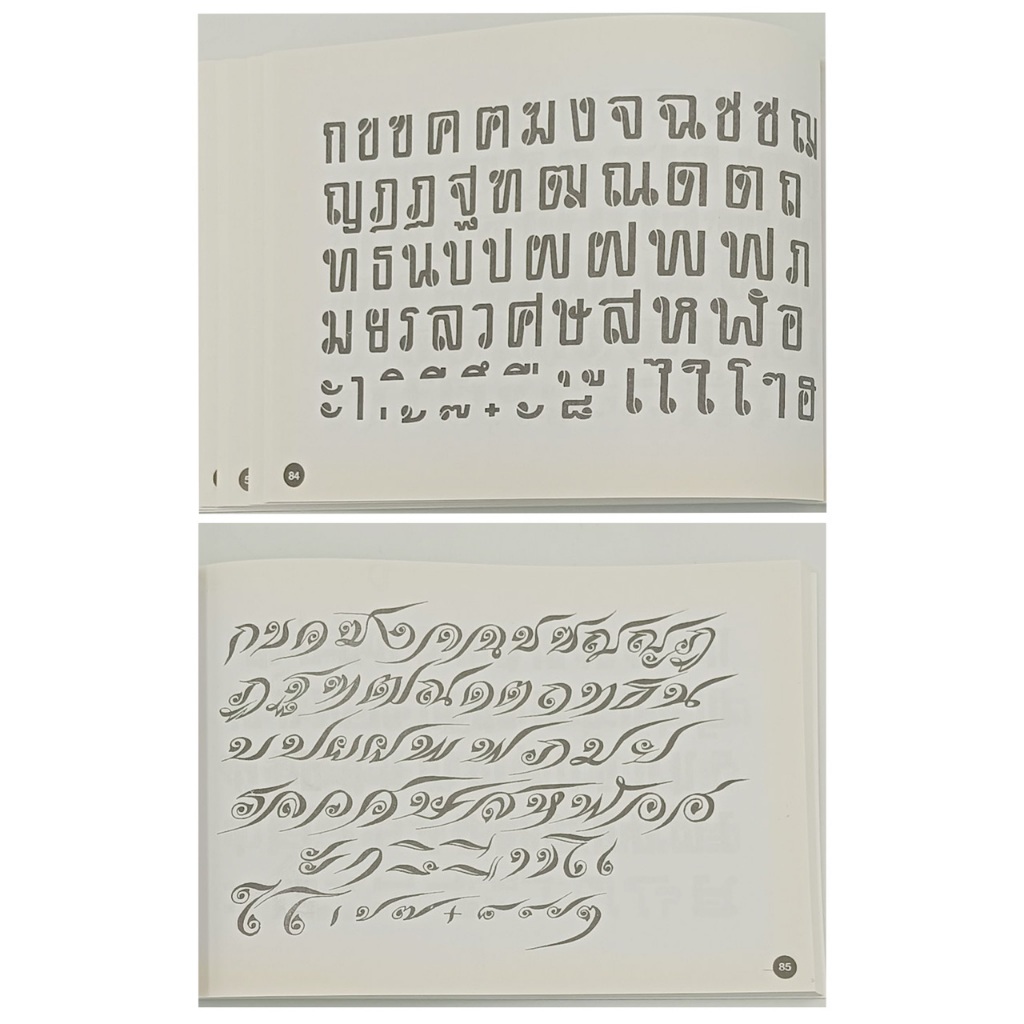 กขฃคฅฆงจฉชซฌ
ญฎฏฐฑฒณดตถ
ทธนบปผฝพฟภ
มยรลวศษสหฬอ
ะา ิ ี ึ ื ุ ู ็ + ะ ๘ เไใโๆฮ
84
กขคฆงจฉชซฌญฎ
ฏฐฑฒณดตถทธน
บปผฝพฟภมย
รลวศษสหฬอฮ
ะา
ไโ + ๆ
85